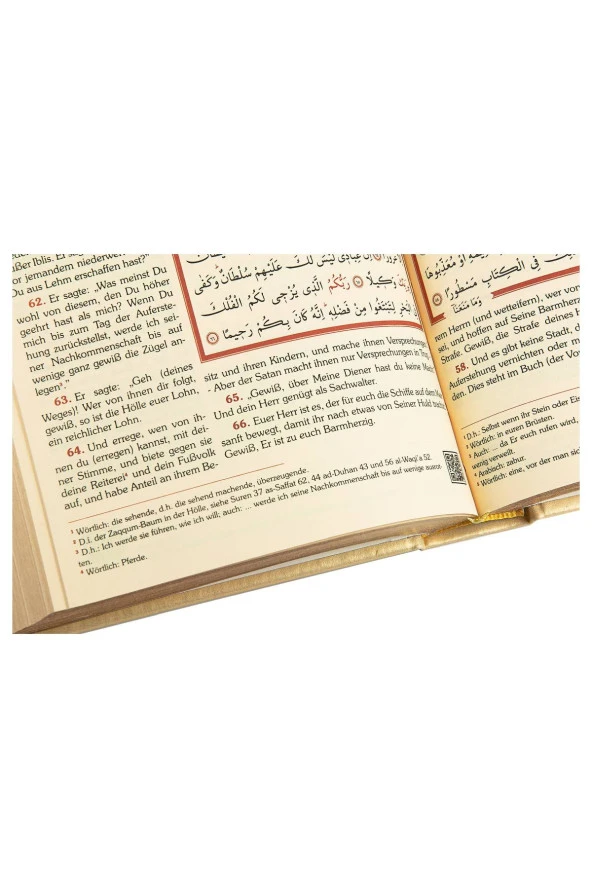 ußer Iblis. Er sag
or jemandem niederwer
Du aus Lehm erschaffen hast?"
62. Er sagte: „Was meinst Du
wohl von diesem, den Du höher
geehrt hast als mich? Wenn Du
mich bis zum Tag der Auferste-
hung zurückstellst, werde ich sei-
ner Nachkommenschaft bis auf
wenige ganz gewiß die Zügel an-
legen³."
63. Er sagte: „Geh (deines
Weges)! Wer von ihnen dir folgt,
gewiß, so ist die Hölle euer Lohn,
ein reichlicher Lohn.
64. Und errege, wen von ih-
nen du (erregen) kannst, mit dei-
ner Stimme, und biete gegen sie
deine Reiterei⁴ und dein Fußvolk
auf, und habe Anteil an ihrem Be-
اِنَّ عِبَادٖى لَيْسَ لَكَ عَلَيْهِمْ سُلْطَانٌ وَكَفٰى
وَكٖيلًا ٦٥ رَبُّكُمُ الَّذٖى يُزْجٖى لَكُمُ الْفُلْكَ
لِتَبْتَغُوا مِنْ فَضْلِهٖ اِنَّهُ كَانَ بِكُمْ رَحٖيمًا ٦٦
sitz und ihren Kindern, und mache ihnen Versprechung
- Aber der Satan macht ihnen nur Versprechungen in Trug. -
65. „Gewiß, über Meine Diener hast du keine Macht
Und dein Herr genügt als Sachwalter.
66. Euer Herr ist es, der für euch die Schiffe auf dem M
sanft bewegt, damit ihr nach etwas von Seiner Huld trachte
Gewiß, Er ist zu euch Barmherzig.
¹ Wörtlich: die sehende, d.h. die sehend machende, überzeugende.
² D.i. der Zaqqum-Baum in der Hölle, siehe Suren 37 as-Saffat 62, 44 ad-Duhan 43 und 56 al-Waqi'a 52.
³ D.h.: Ich werde sie führen, wie ich will; auch: ... werde ich seine Nachkommenschaft bis auf wenige ausrot-
ten.
⁴ Wörtlich: Pferde.
اَوْ مُعَذِّبُوهَا
فِى الْكِتَابِ مَسْطُورًا
٥٨ وَمَا مَنَعَنَا
rem Herrn (und wetteifern), wer von
sei, und hoffen auf Seine Barmherz
Strafe. Gewiß, die Strafe deines H
58. Und es gibt keine Stadt, d
Auferstehung vernichten oder m
den. Dies steht im Buch (der Vor
¹ D.h.: Selbst wenn ihr Stein oder Eis
² Wörtlich: in euren Brüsten.
³ Auch: ... da Er euch rufen wird,
wenig verweilt.
⁴ Arabisch: zabur.
⁵ Wörtlich: eine, vor der man sic